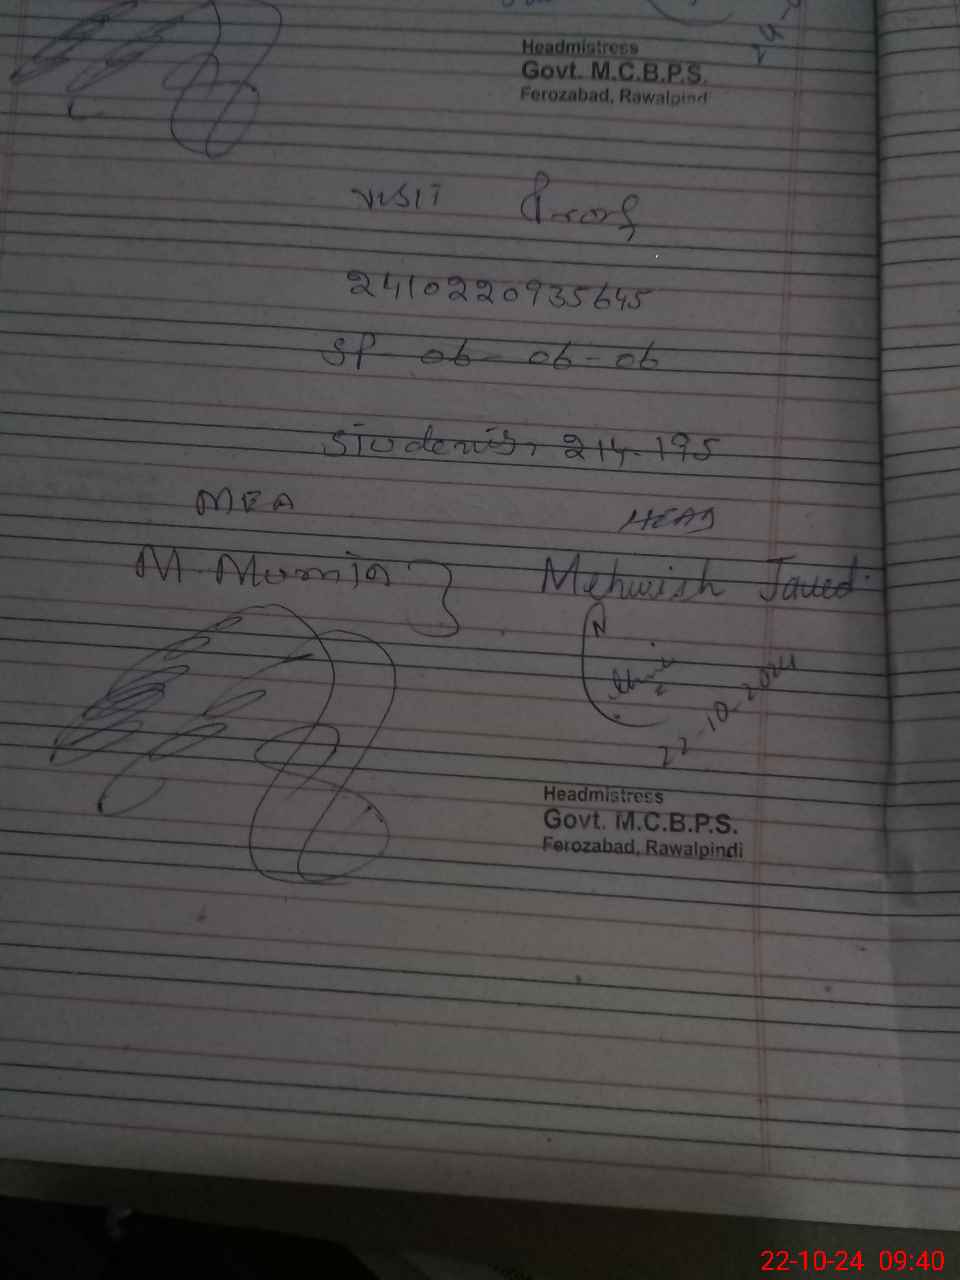 Headmistress
Govt. M.C.B.P.S.
Ferozabad, Rawalpindi
VISIT Proof
2410220935645
SP 06-06-06
Students, 214-195
MEA
HEAD
M.
Mehwish Javed
22-10-2024
Headmistress
Govt. M.C.B.P.S.
Ferozabad, Rawalpindi
22-10-24 09:40